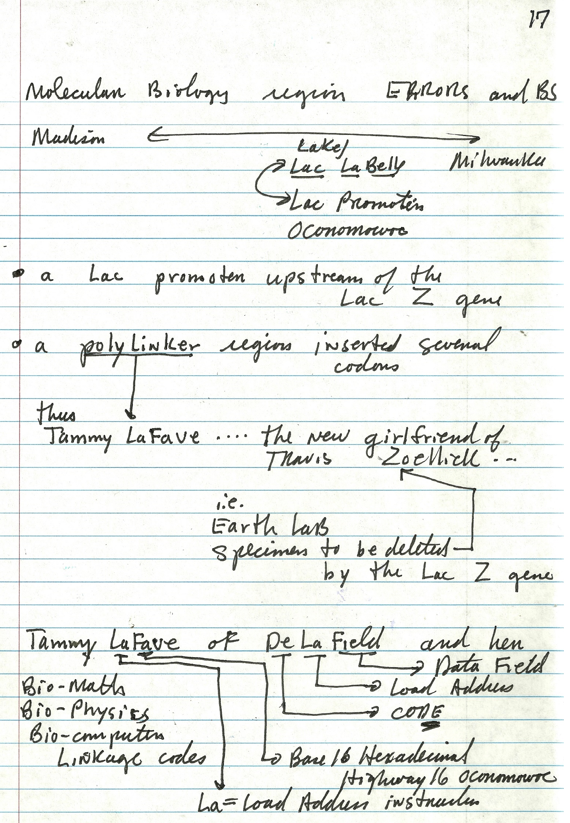 17
Molecular Biology region ERRORS and BS
Madison
Lake/
Lac La Belly
Milwaukee
Lac Promoter
Oconomowoc
• a Lac promoter upstream of the
Lac Z gene
• a polyLinker region inserted several
codons
thus
Tammy LaFave .... the new girlfriend of
Travis Zoellick ...
i.e.
Earth LaB
Specimens to be deleted
by the Lac Z gene
Tammy LaFave of DeLaField and her
Data Field
Bio-Math
Load Address
Bio-Physics
CODE
Bio-computer
Linkage codes
Base 16 Hexadecimal
Highway 16 Oconomowoc
La = Load Address instruction